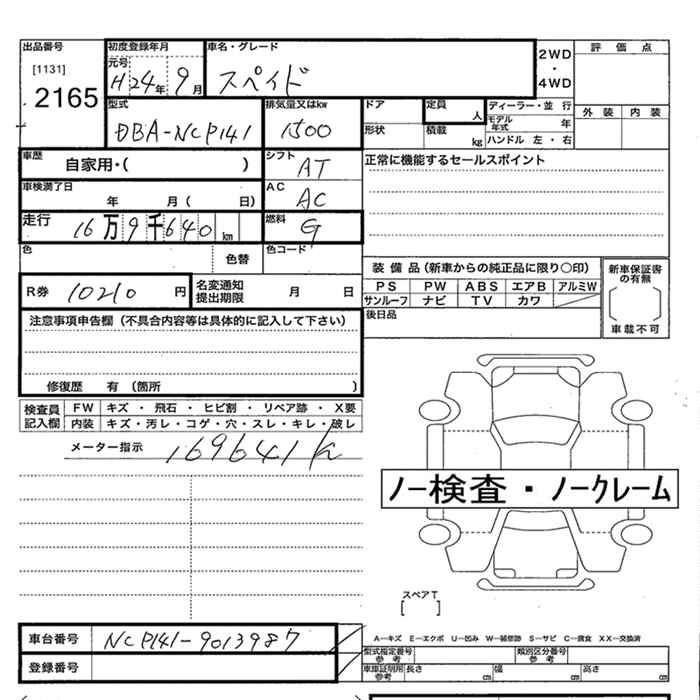 出品番号
[1131]
2165
初度登録年月
元号
H 24年 9月
車名・グレード
スペイド
2WD
・
4WD
評価点
外装 内装
型式
DBA-NCP141
排気量又はkw
1500
ドア
形状
定員
人
積載
kg
ディーラー・並行
モデル年式
年
ハンドル 左・右
車歴
自家用・( )
シフト
AT
正常に機能するセールスポイント
車検満了日
年 月( 日)
AC
AC
走行
16万9千640km
燃料
G
色
色替
色コード
装備品(新車からの純正品に限り○印)
PS PW ABS エアB アルミW
サンルーフ ナビ TV カワ
新車保証書の有無
[ ]
車載不可
R券 10210円
名変通知
提出期限
月 日
後日品
注意事項申告欄(不具合内容等は具体的に記入して下さい)
修復歴 有(箇所 )
検査員
記入欄
FW キズ・飛石・ヒビ割・リペア跡・X要
内装 キズ・汚レ・コゲ・穴・スレ・キレ・破レ
メーター指示 169641k
ノー検査・ノークレーム
スペアT
[ ]
車台番号 NCP141-9013987
登録番号
A―キズ E―エクボ U―凹み W―補修跡 S―サビ C―腐食 XX―交換済
型式指定番号
参考
類別区分番号
参考
車庫証明用
参考
長さ cm 幅 cm 高さ cm